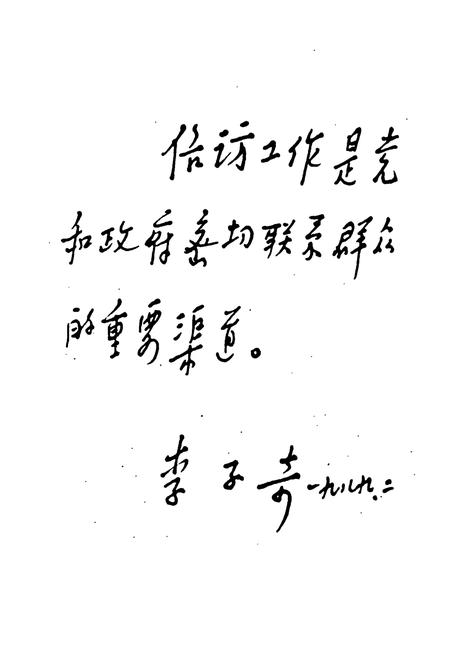 信访工作是党
和政府密切联系群众
的重要渠道。
李子奇 一九八九.二